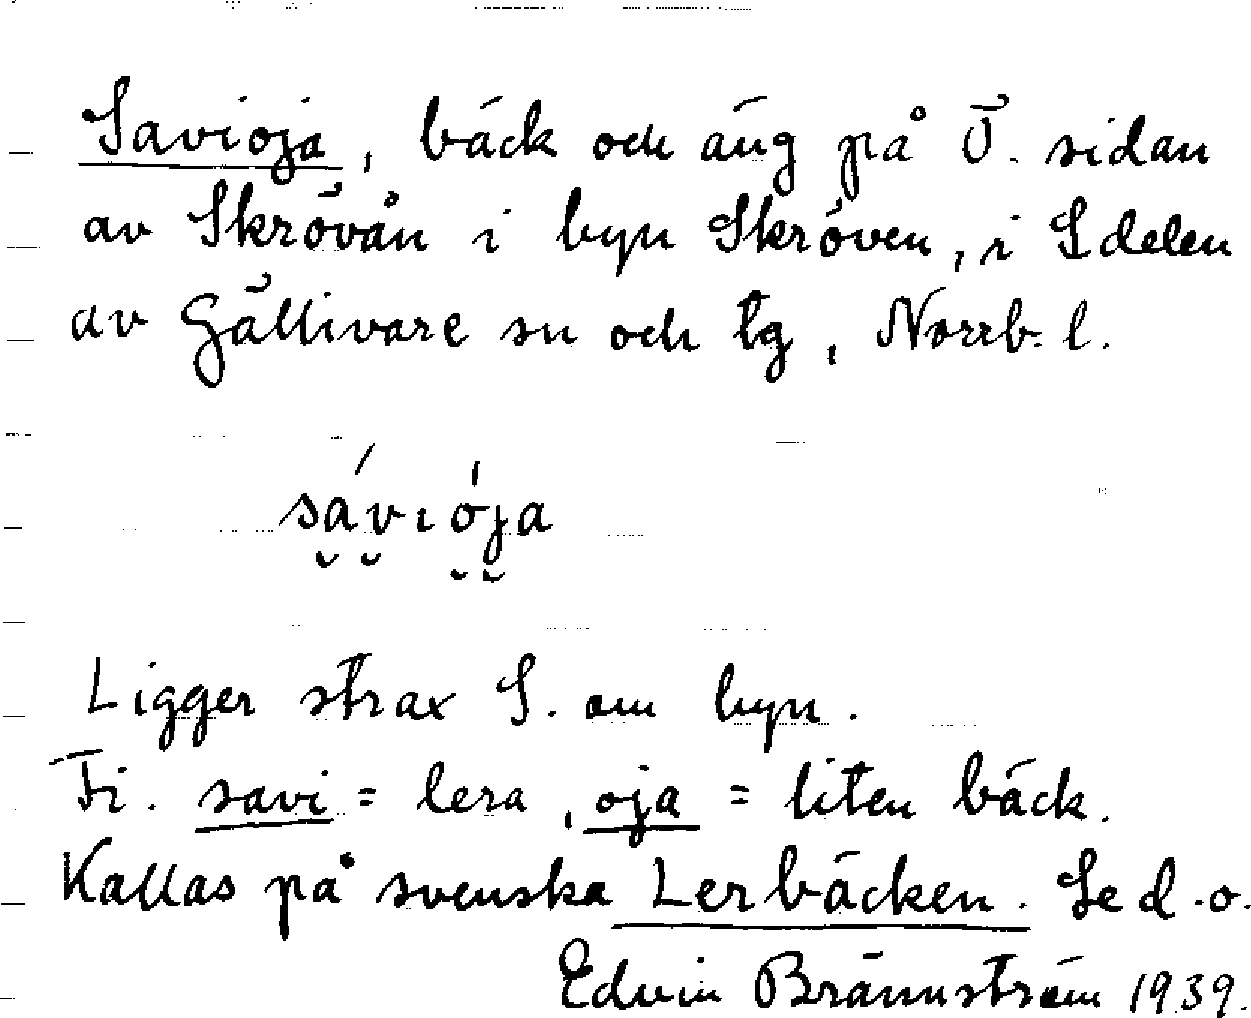 Savioja, bäck och äng på Ö. sidan
av Skrövån i byn Skröven, i S delen
av Gällivare sn och tg, Norrb. l.
sávıója
Ligger strax S. om byn.
Fi. savi = lera, oja = liten bäck.
Kallas på svenska Lerbäcken. Se d.o.
Edvin Brännström 1939.